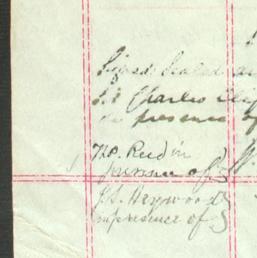 Signed Sealed an
by Charles Clif
in presence of
Reed in
presence of
J.S. Haywood
in presence of